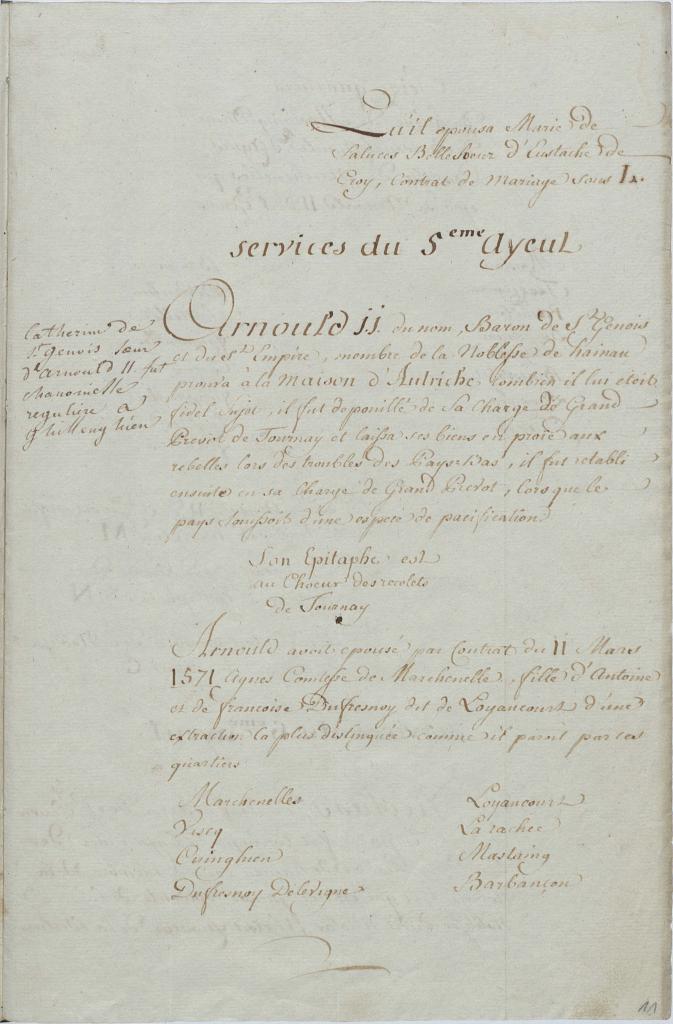 Qu'il epousa Marie de
Saluces Belle Soeur d'Eustache de
Croy, Contrat de Mariage sous L.
services du 5eme Ayeul
Catherine de
St Genois soeur
d'Arnould II fut
chanoinesse
reguliere a
Ghillenghien
Arnould II. du nom, Baron de St Genois
et du St Empire, membre de la Noblesse de hainau
prouva à la Maison d'Autriche combien il lui etoit
fidel Sujet, il fut depouillé de Sa Charge de Grand
Prevot de Tournay et laissa ses biens en proie aux
rebelles lors des troubles des Pays-bas, il fut retabli
ensuite en sa Charge de Grand Prevot, lorsque le
pays jouissoit d'une espece de pacification
Son Epitaphe est
au Choeur des recolets
de Tournay
Arnould avoit epousé par Contrat du 11 Mars
1571 Agnes Comtesse de Marchenelle, fille d'Antoine
et de francoise Dufresnoy dit de Loyancourt d'une
extraction la plus distinguée comme il paroit par ses
quartiers
Marchenelles Loyancourt
Viscq La rachee
Cuinghien Mastaing
Dufresnoy Barbançon
11